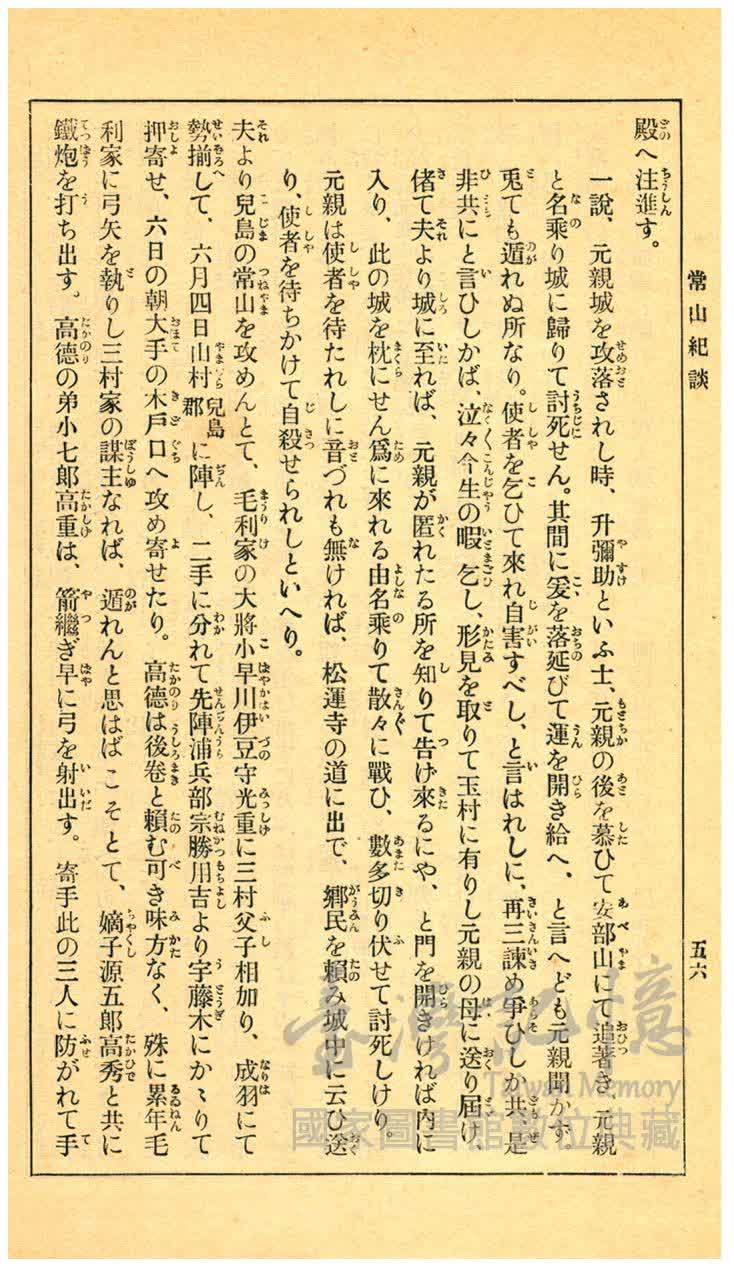 常山紀談
五六
殿へ注進す。
一說、元親城を攻落されし時、升彌助といふ士、元親の後を慕ひて安部山にて追著き、元親
と名乘り城に歸りて討死せん。其間に爰を落延びて運を開き給へ、と言へども元親聞かず。
兎ても遁れぬ所なり。使者を乞ひて來れ自害すべし、と言はれしに、再三諫め爭ひしか共、是
非共にと言ひしかば、泣々今生の暇乞し、形見を取りて玉村に有りし元親の母に送り屆け、
偖て夫より城に至れば、元親が匿れたる所を知りて告げ來るにや、と門を開きければ內に
入り、此の城を枕にせん爲に來れる由名乘りて散々に戰ひ、數多切り伏せて討死しけり。
元親は使者を待たれしに音づれも無ければ、松運寺の道に出で、鄕民を賴み城中に云ひ送
り、使者を待ちかけて自殺せられしといへり。
夫より兒島の常山を攻めんとて、毛利家の大將小早川伊豆守光重に三村父子相加り、成羽にて
勢揃して、六月四日山村兒島郡に陣し、二手に分れて先陣浦兵部宗勝用吉より宇藤木にかゝりて
押寄せ、六日の朝大手の木戶口へ攻め寄せたり。高德は後卷と賴む可き味方なく、殊に累年毛
利家に弓矢を執りし三村家の謀主なれば、遁れんと思はばこそとて、嫡子源五郞高秀と共に
鐵炮を打ち出す。高德の弟小七郞高重は、箭繼ぎ早に弓を射出す。寄手此の三人に防がれて手
臺灣記憶
Taiwan Memory
國家圖書館數位典藏